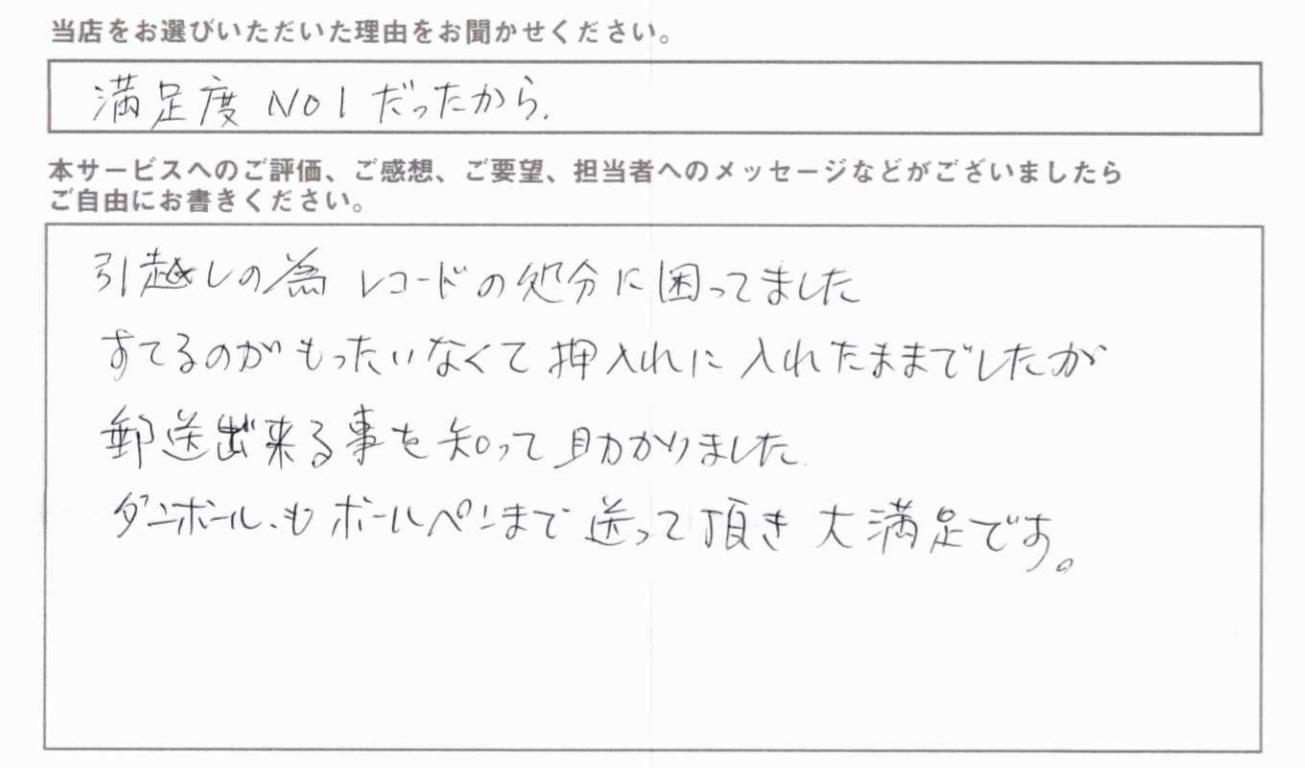 当店をお選びいただいた理由をお聞かせください。
満足度 NO1 だったから.
本サービスへのご評価、ご感想、ご要望、担当者へのメッセージなどがございましたら
ご自由にお書きください。
引越しの為 レコードの処分に困ってました
すてるのがもったいなくて押入れに入れたままでしたが
郵送出来る事を知って助かりました.
ダンボール、も ボールペンまで送って頂き大満足です。